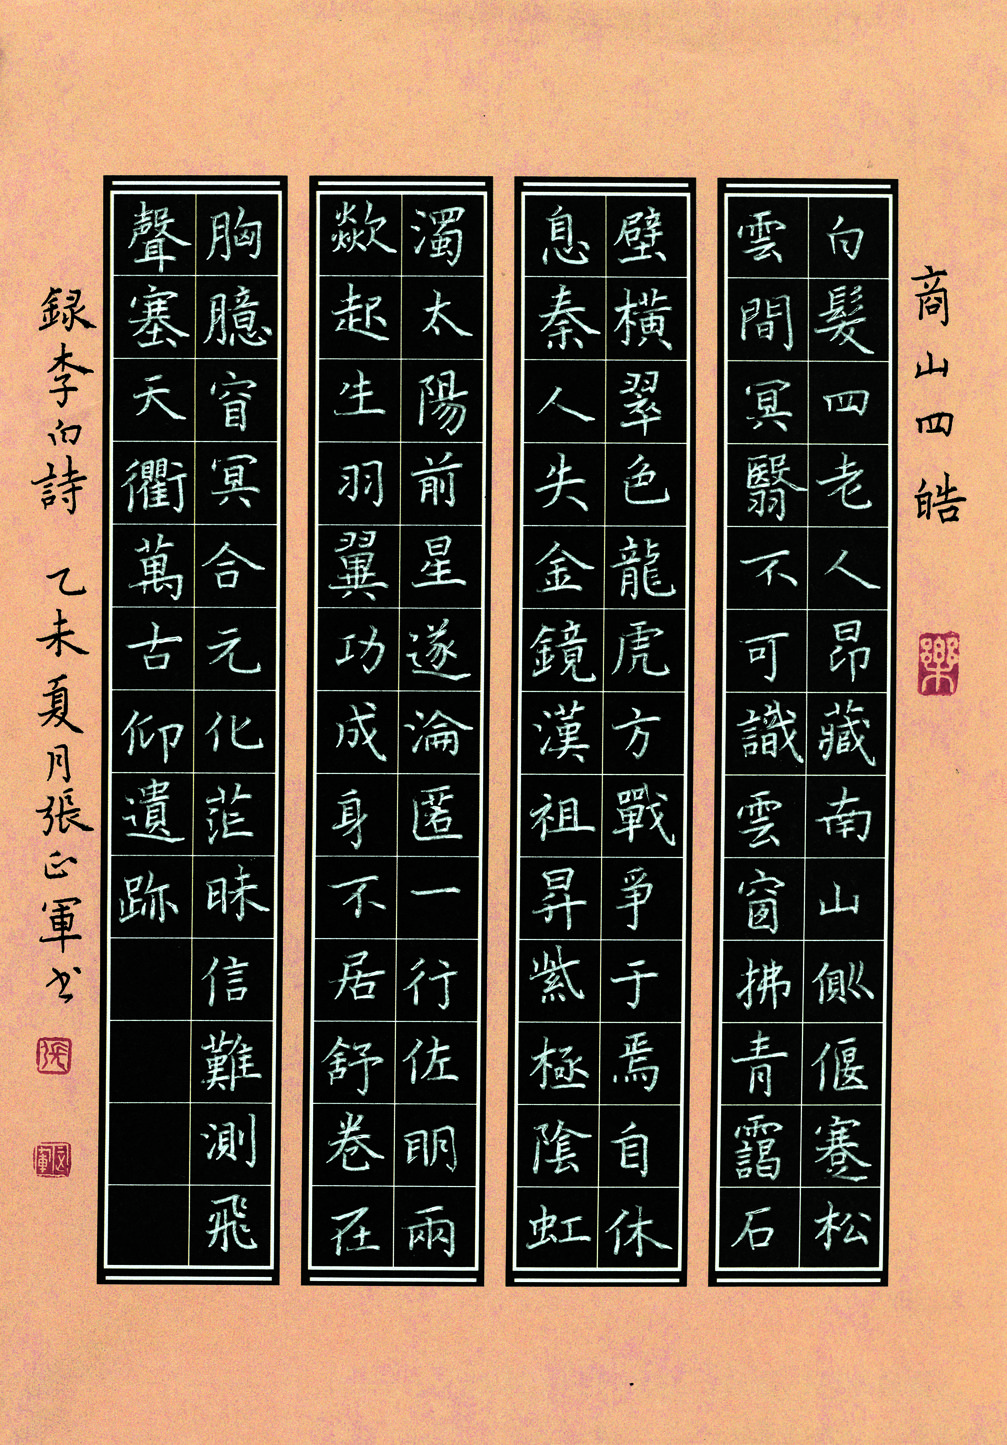 商山四皓
樂
白髮四老人昂藏南山側偃蹇松
雲間冥翳不可識雲窗拂青靄石
壁橫翠色龍虎方戰爭于焉自休
息秦人失金鏡漢祖昇紫極陰虹
濁太陽前星遂淪匿一行佐明兩
歘起生羽翼功成身不居舒卷在
胸臆窅冥合元化茫昧信難測飛
聲塞天衢萬古仰遺跡
録李白詩 乙未夏月張正軍书
張